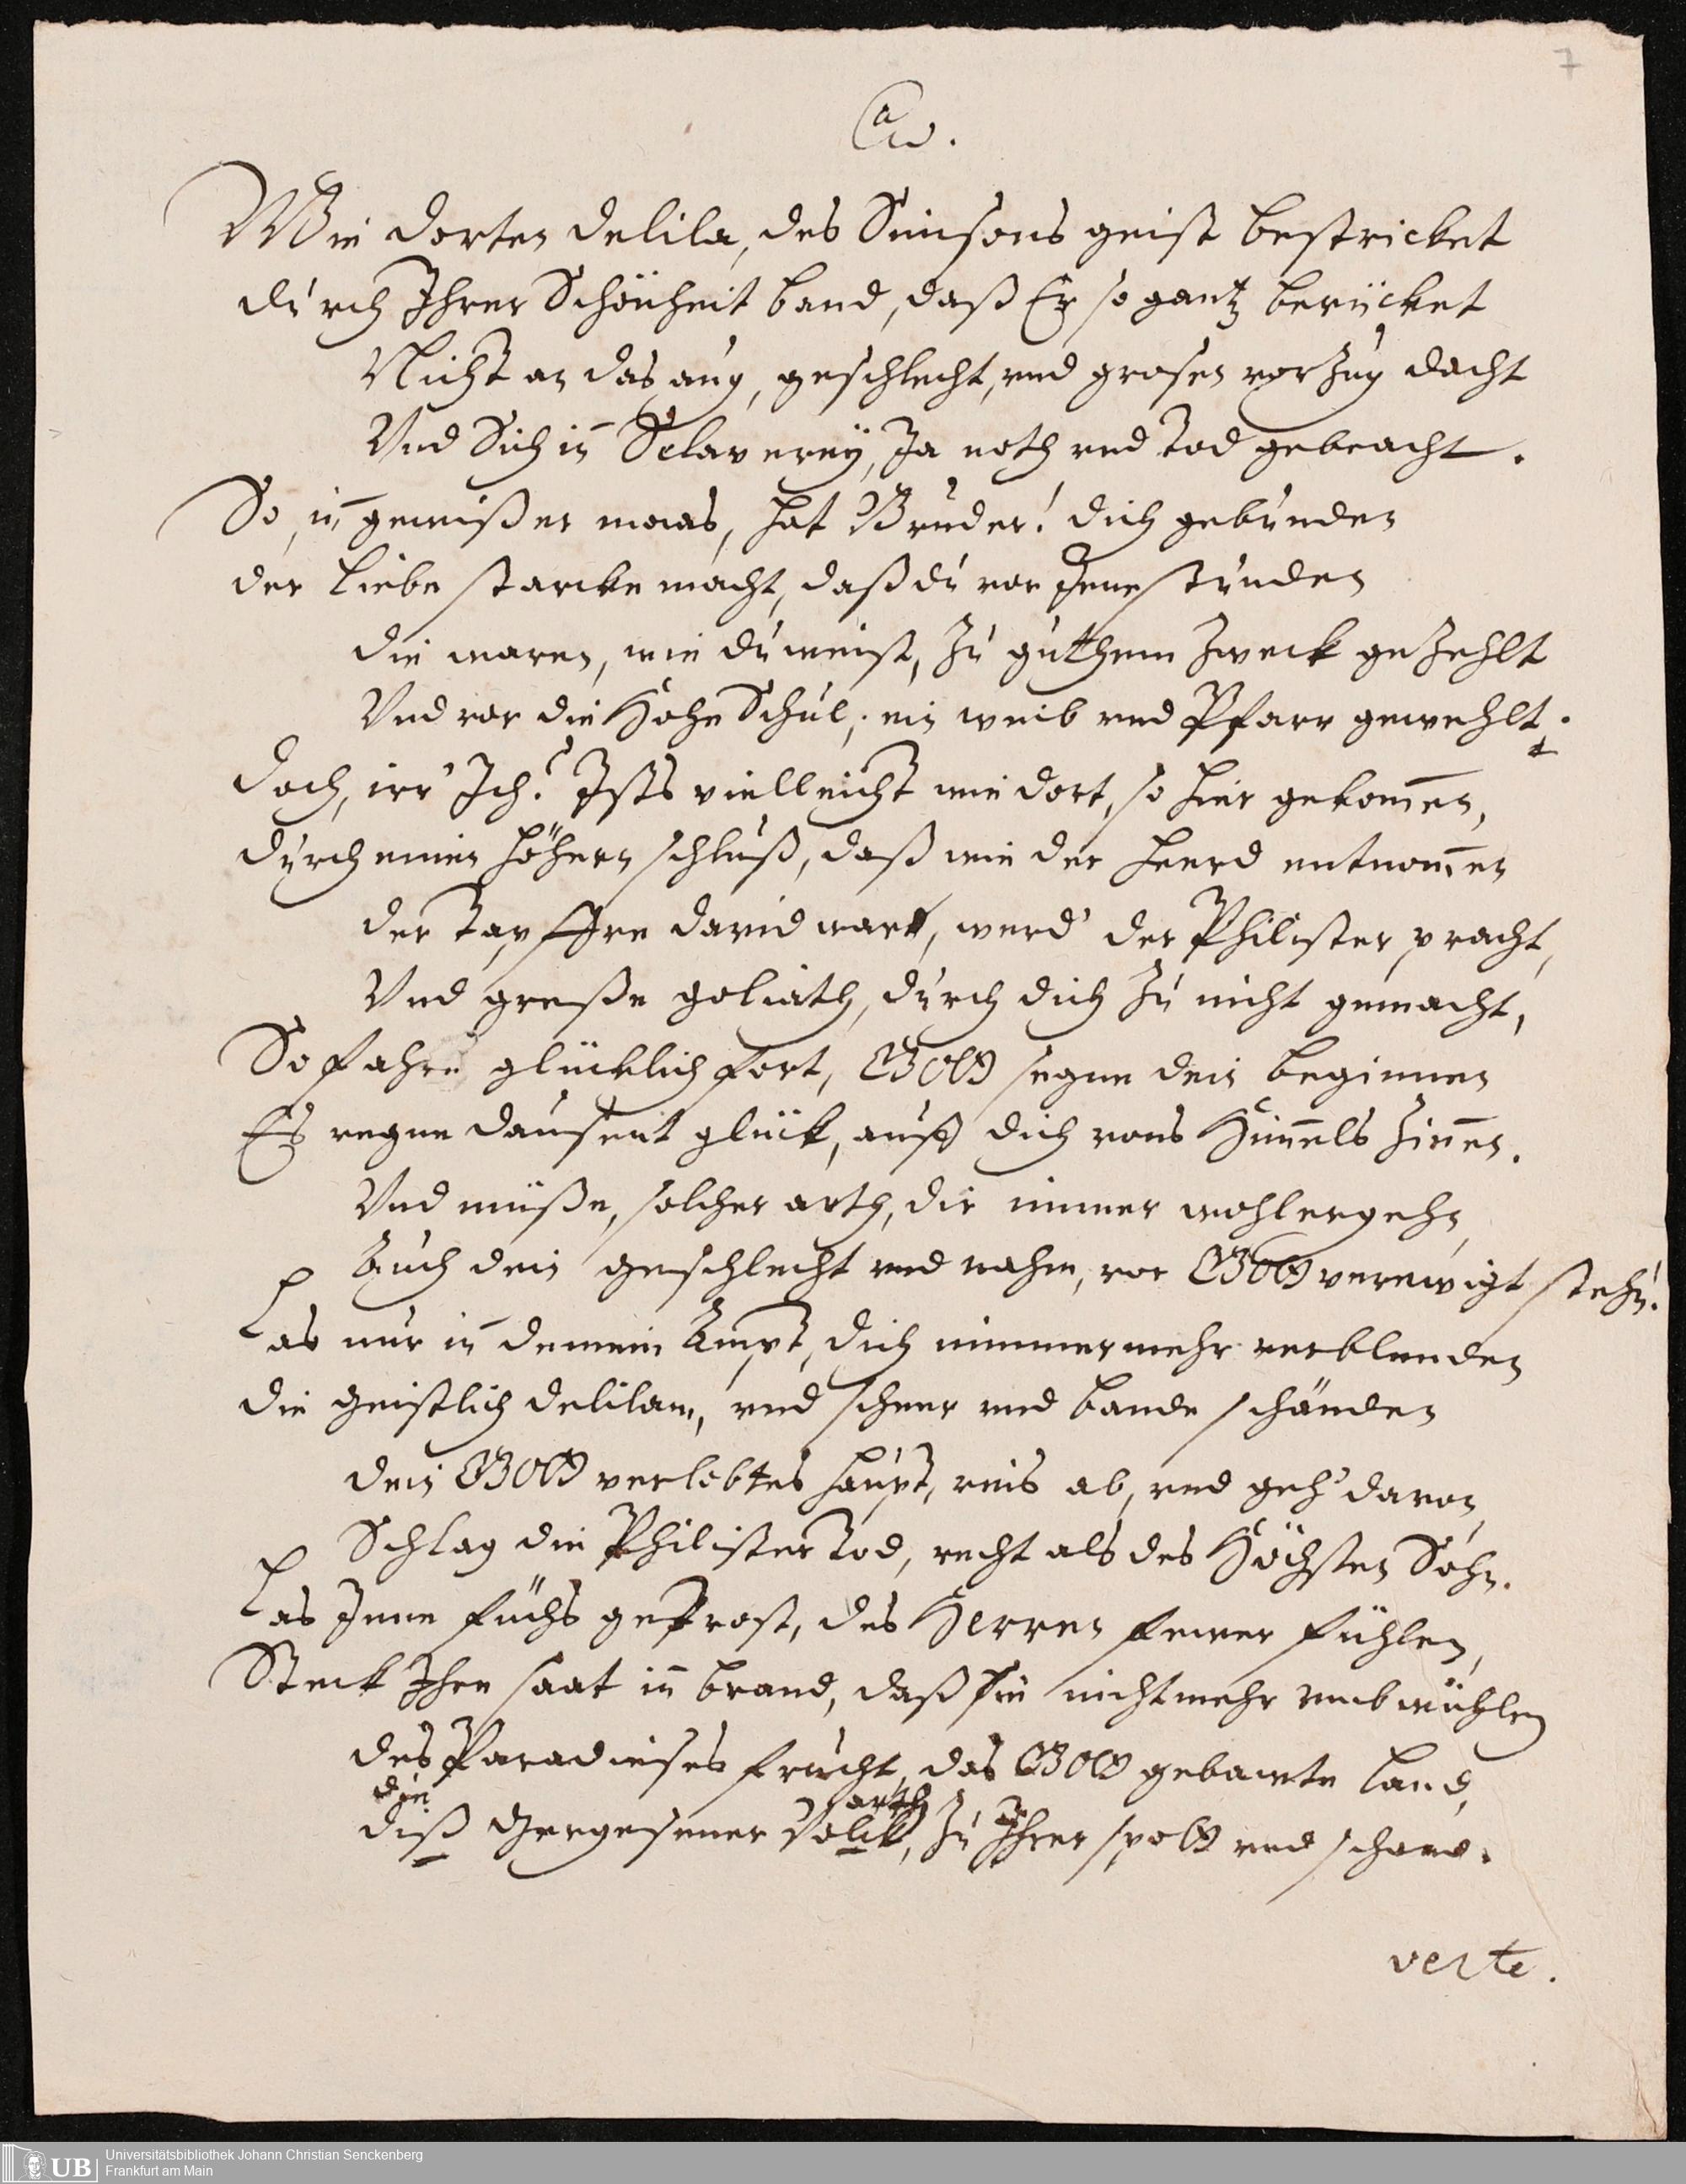 7
Wie dorten Delila, des Simsons geist bestricket
durch Ihrer Schönheit band, daß Er so gantz berücket
Nicht an das aug, geschlecht, und grosen vorzug dacht
Und Sich in Sclaverey, Ja noth und Tod gebracht.
So, in gewißer maas, hat Bruder! dich gebunden
der Liebe starcke macht, daß du vor Jene stunden
die waren, wie du weist, zu guthem Zweck gezehlt
Und vor die Hohe Schul, ein weib und Pfarr gewehlt.
doch, irr' Ich? Ists vielleicht wie dort, so hier gekom̄en,
durch einen höhern schluß, daß wie der heerd entnom̄en
der Tapffre david wart, werd' der Philister pracht,
Und große goliath, durch dich zu nicht gemacht,
So fahre glücklich fort, GOtt segne dein beginnen
Es regne dausent glück, auff dich vons Him̄els Zin̄en.
Und müße, solcher arth, dir immer wohlergehn
Auch dein geschlecht und nahm, vor GOtt verewigt stehn.
Las nur in deinem Ampt, dich nimmermehr verblenden
die geistlich delilam, und scheer und bande schänden
dein GOtt verlobtes haupt, reis ab, und geh' davon
Schlag die Philister Tod, recht als des Höchsten Sohn.
Las Jene füchs getrost, des Herren fewer fühlen,
Steck Ihre saat in brand, daß sie nicht mehr umbwühlen
des Paradieses frucht, das GOtt gebawte Land,
die arth
diß Gergesener Volck, zu Ihrer spott und schand.
verte.
UB Universitätsbibliothek Johann Christian Senckenberg
Frankfurt am Main